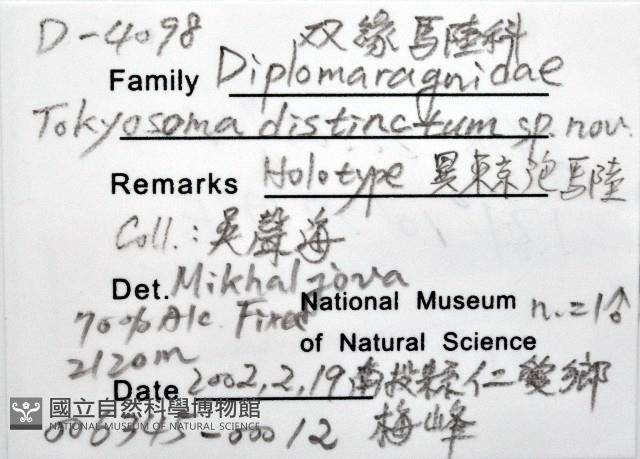 D-4098 双緣馬陸科
Family Diplomaragnidae
Tokyosoma distinctum sp. nov.
Remarks Holotype 異東京泡馬陸
Coll.: 吳聲海
Det. Mikhaljova
National Museum n.=1♂
70% Alc. Fixed
of Natural Science
2120m
Date 2002,2,19 南投縣仁愛鄉
國立自然科學博物館
NATIONAL MUSEUM OF NATURAL SCIENCE
006345-00012 梅峰